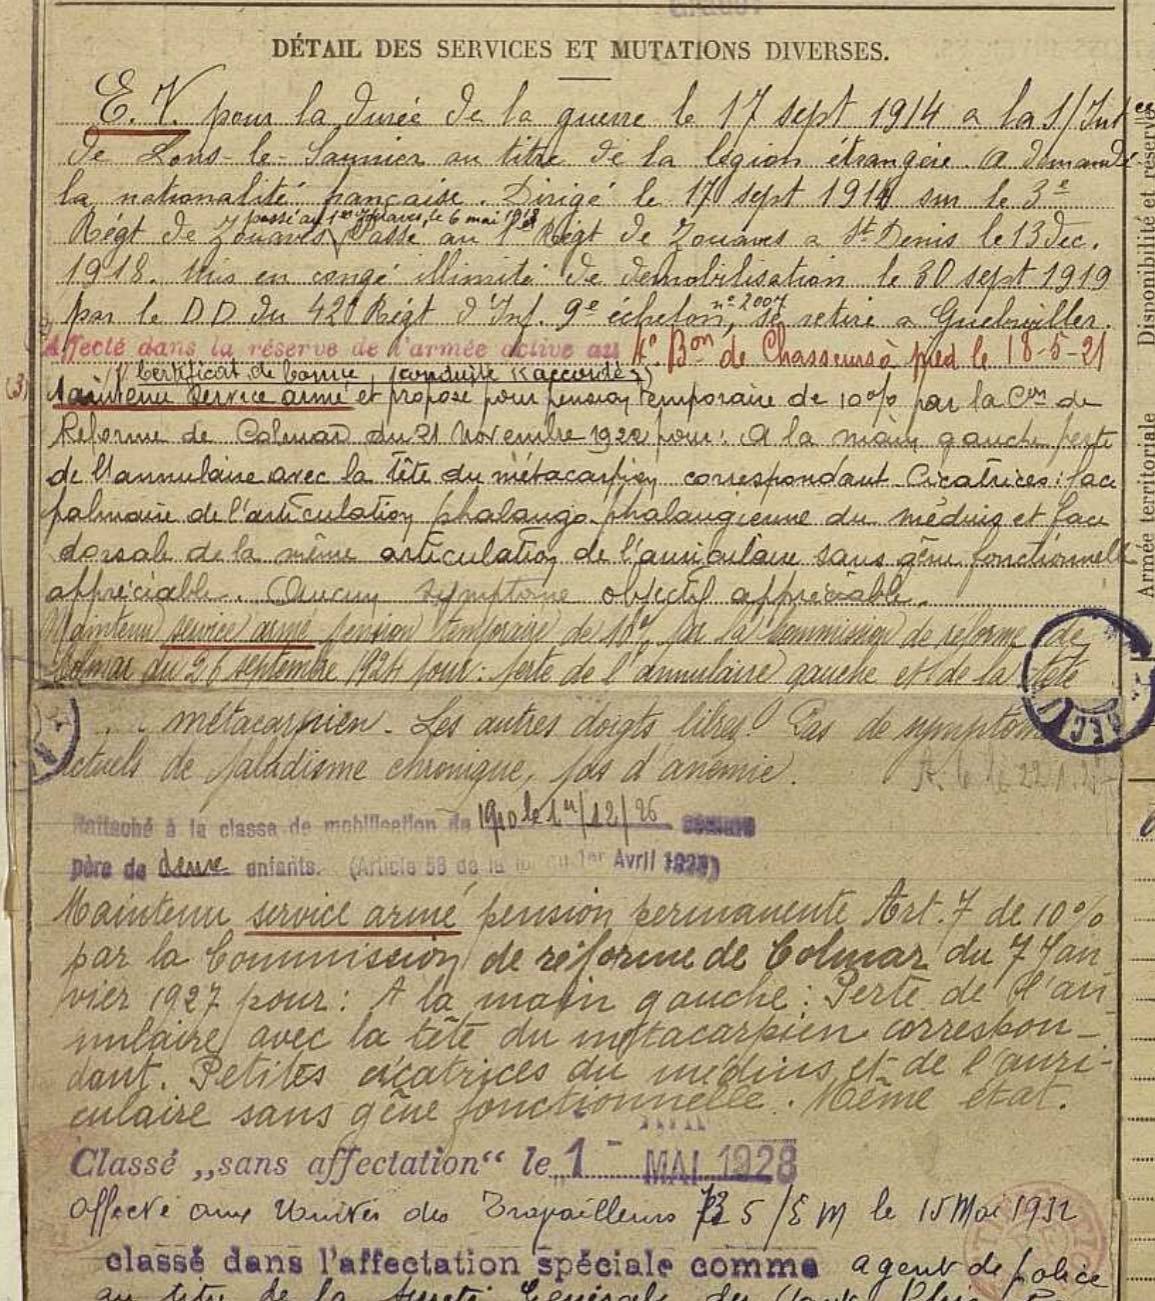 DÉTAIL DES SERVICES ET MUTATIONS DIVERSES.
E. V. pour la durée de la guerre le 17 sept 1914 a la S/Intce
de Lons-le-Saunier au titre de la légion étrangère. A demandé
la nationalité française. Dirigé le 17 sept 1914 sur le 3e
passé au 1er Zouaves, le 6 mai 1918
Régt de Zouaves Passé au 1er Régt de Zouaves a St Denis le 13 dec.
1918. Mis en congé illimité de démobilisation le 30 sept 1919
par le D D du 42e Régt d'Inf. 9e échelon, n° 2007 se retire a Guebwiller.
Affecté dans la réserve de l'armée active au Bon de Chasseurs à pied le 18-5-21
("Certificat de bonne conduite accordé")
(3)
Maintenu Service armé et proposé pour pension temporaire de 10% par la Con de
Réforme de Colmar du 21 Novembre 1922 pour: A la main gauche perte
de l'annulaire avec la tête du métacarpien correspondant. Cicatrices: face
palmaire de l'articulation phalango-phalangienne du médius et face
dorsale de la même articulation de l'auriculaire sans gêne fonctionnelle
appréciable. Aucun symptome objectif appréciable.
Maintenu service armé pension temporaire de 10% par la commission de réforme de
Colmar du 26 septembre 1924 pour: perte de l'annulaire gauche et de la tête
métacarpien. Les autres doigts libres. Pas de symptom
actuels de paludisme chronique, pas d'anémie.
Rattaché à la classe de mobilisation de 1910 le 1er/12/26 comme
père de deux enfants. (Article 58 de la loi du 1er Avril 1923)
Maintenu service armé pension permanente Art. 7 de 10%
par la Commission de réforme de Colmar du 7 Jan
vier 1927 pour: A la main gauche: Perte de l'an
nulaire avec la tête du métacarpien correspon-
dant. Petites cicatrices du médius et de l'auri-
culaire sans gêne fonctionnelle. Même état.
Classé „sans affectation“ le 1- MAI 1928
Affecté aux Unités des Travailleurs 5/EM le 15 Mai 1932
classé dans l'affectation spéciale comme agent de police
au titre de la Sureté Générale du
Disponibilité et réserve
Armée territoriale